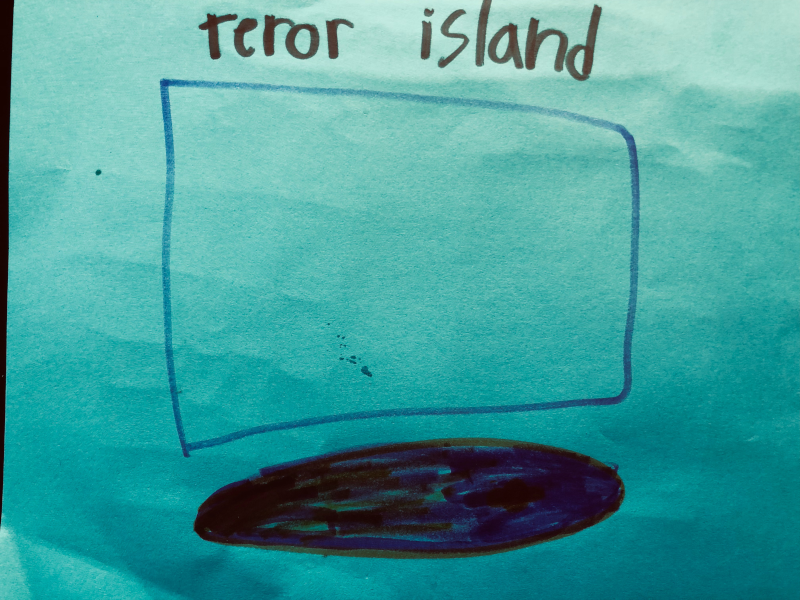 teror island